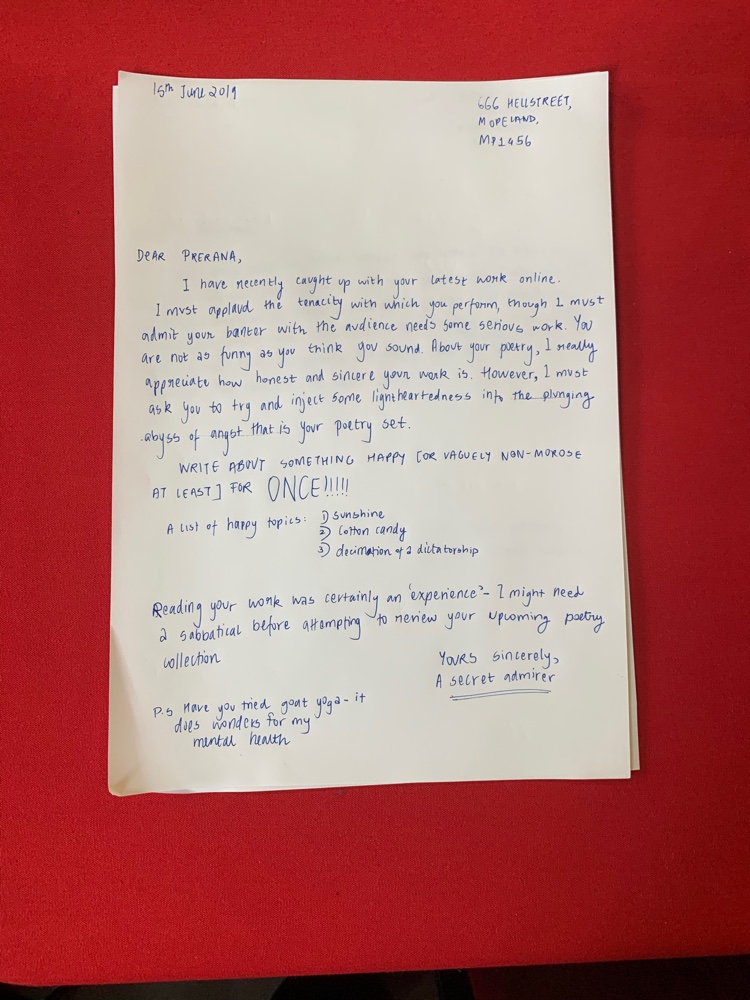 15th June 2019
666 HELLSTREET,
MOPELAND,
MP1456
DEAR PRERANA,
I have recently caught up with your latest work online.
I must applaud the tenacity with which you perform, though I must
admit your banter with the audience needs some serious work. You
are not as funny as you think you sound. About your poetry, I really
appreciate how honest and sincere your work is. However, I must
ask you to try and inject some lightheartedness into the plunging
abyss of angst that is your poetry set.
WRITE ABOUT SOMETHING HAPPY [OR VAGUELY NON-MOROSE
AT LEAST] FOR ONCE!!!!!
A list of happy topics: 1) sunshine
2) Cotton candy
3) decimation of a dictatorship
Reading your work was certainly an 'experience' - I might need
a sabbatical before attempting to review your upcoming poetry
collection
YOURS sincerely,
A secret admirer
P.S Have you tried goat yoga - it
does wonders for my
mental health